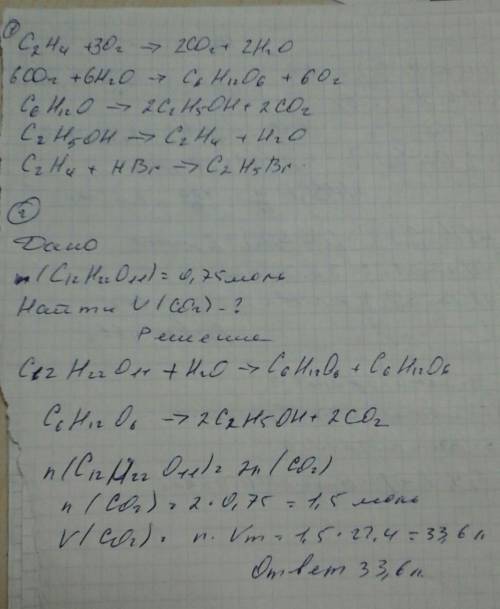 ①
C₂H₄ + 3O₂ → 2CO₂ + 2H₂O
6CO₂ + 6H₂O → C₆H₁₂O₆ + 6O₂
C₆H₁₂O → 2C₂H₅OH + 2CO₂
C₂H₅OH → C₂H₄ + H₂O
C₂H₄ + HBr → C₂H₅Br
②
Дано
n(C₁₂H₂₂O₁₁) = 0,75 моль
Найти V(CO₂) - ?
Решение
C₁₂H₂₂O₁₁ + H₂O → C₆H₁₂O₆ + C₆H₁₂O₆
C₆H₁₂O₆ → 2C₂H₅OH + 2CO₂
n(C₁₂H₂₂O₁₁) = 2n(CO₂)
n(CO₂) = 2 · 0,75 = 1,5 моль
V(CO₂) = n · Vm = 1,5 · 22,4 = 33,6 л
Ответ 33,6 л.